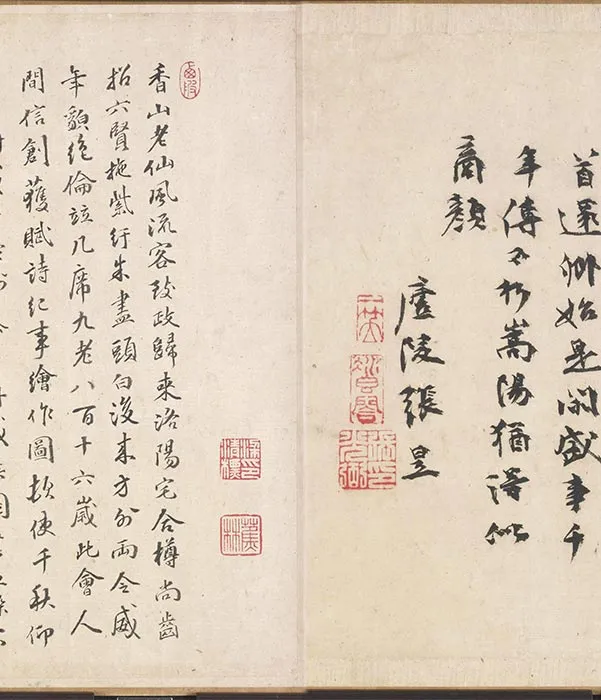 首還鄉始是閑盛事千
年傳不朽嵩陽猶得似
商顏
廬陵張昱
蕉林
香山老仙風流客致政歸來洛陽宅合樽尚齒
招六賢拖紫紆朱盡頭白後來方外兩令威
年貌絕倫竝几席九老八百十六歲此會人
間信創獲賦詩紀事繪作圖故使千秋仰